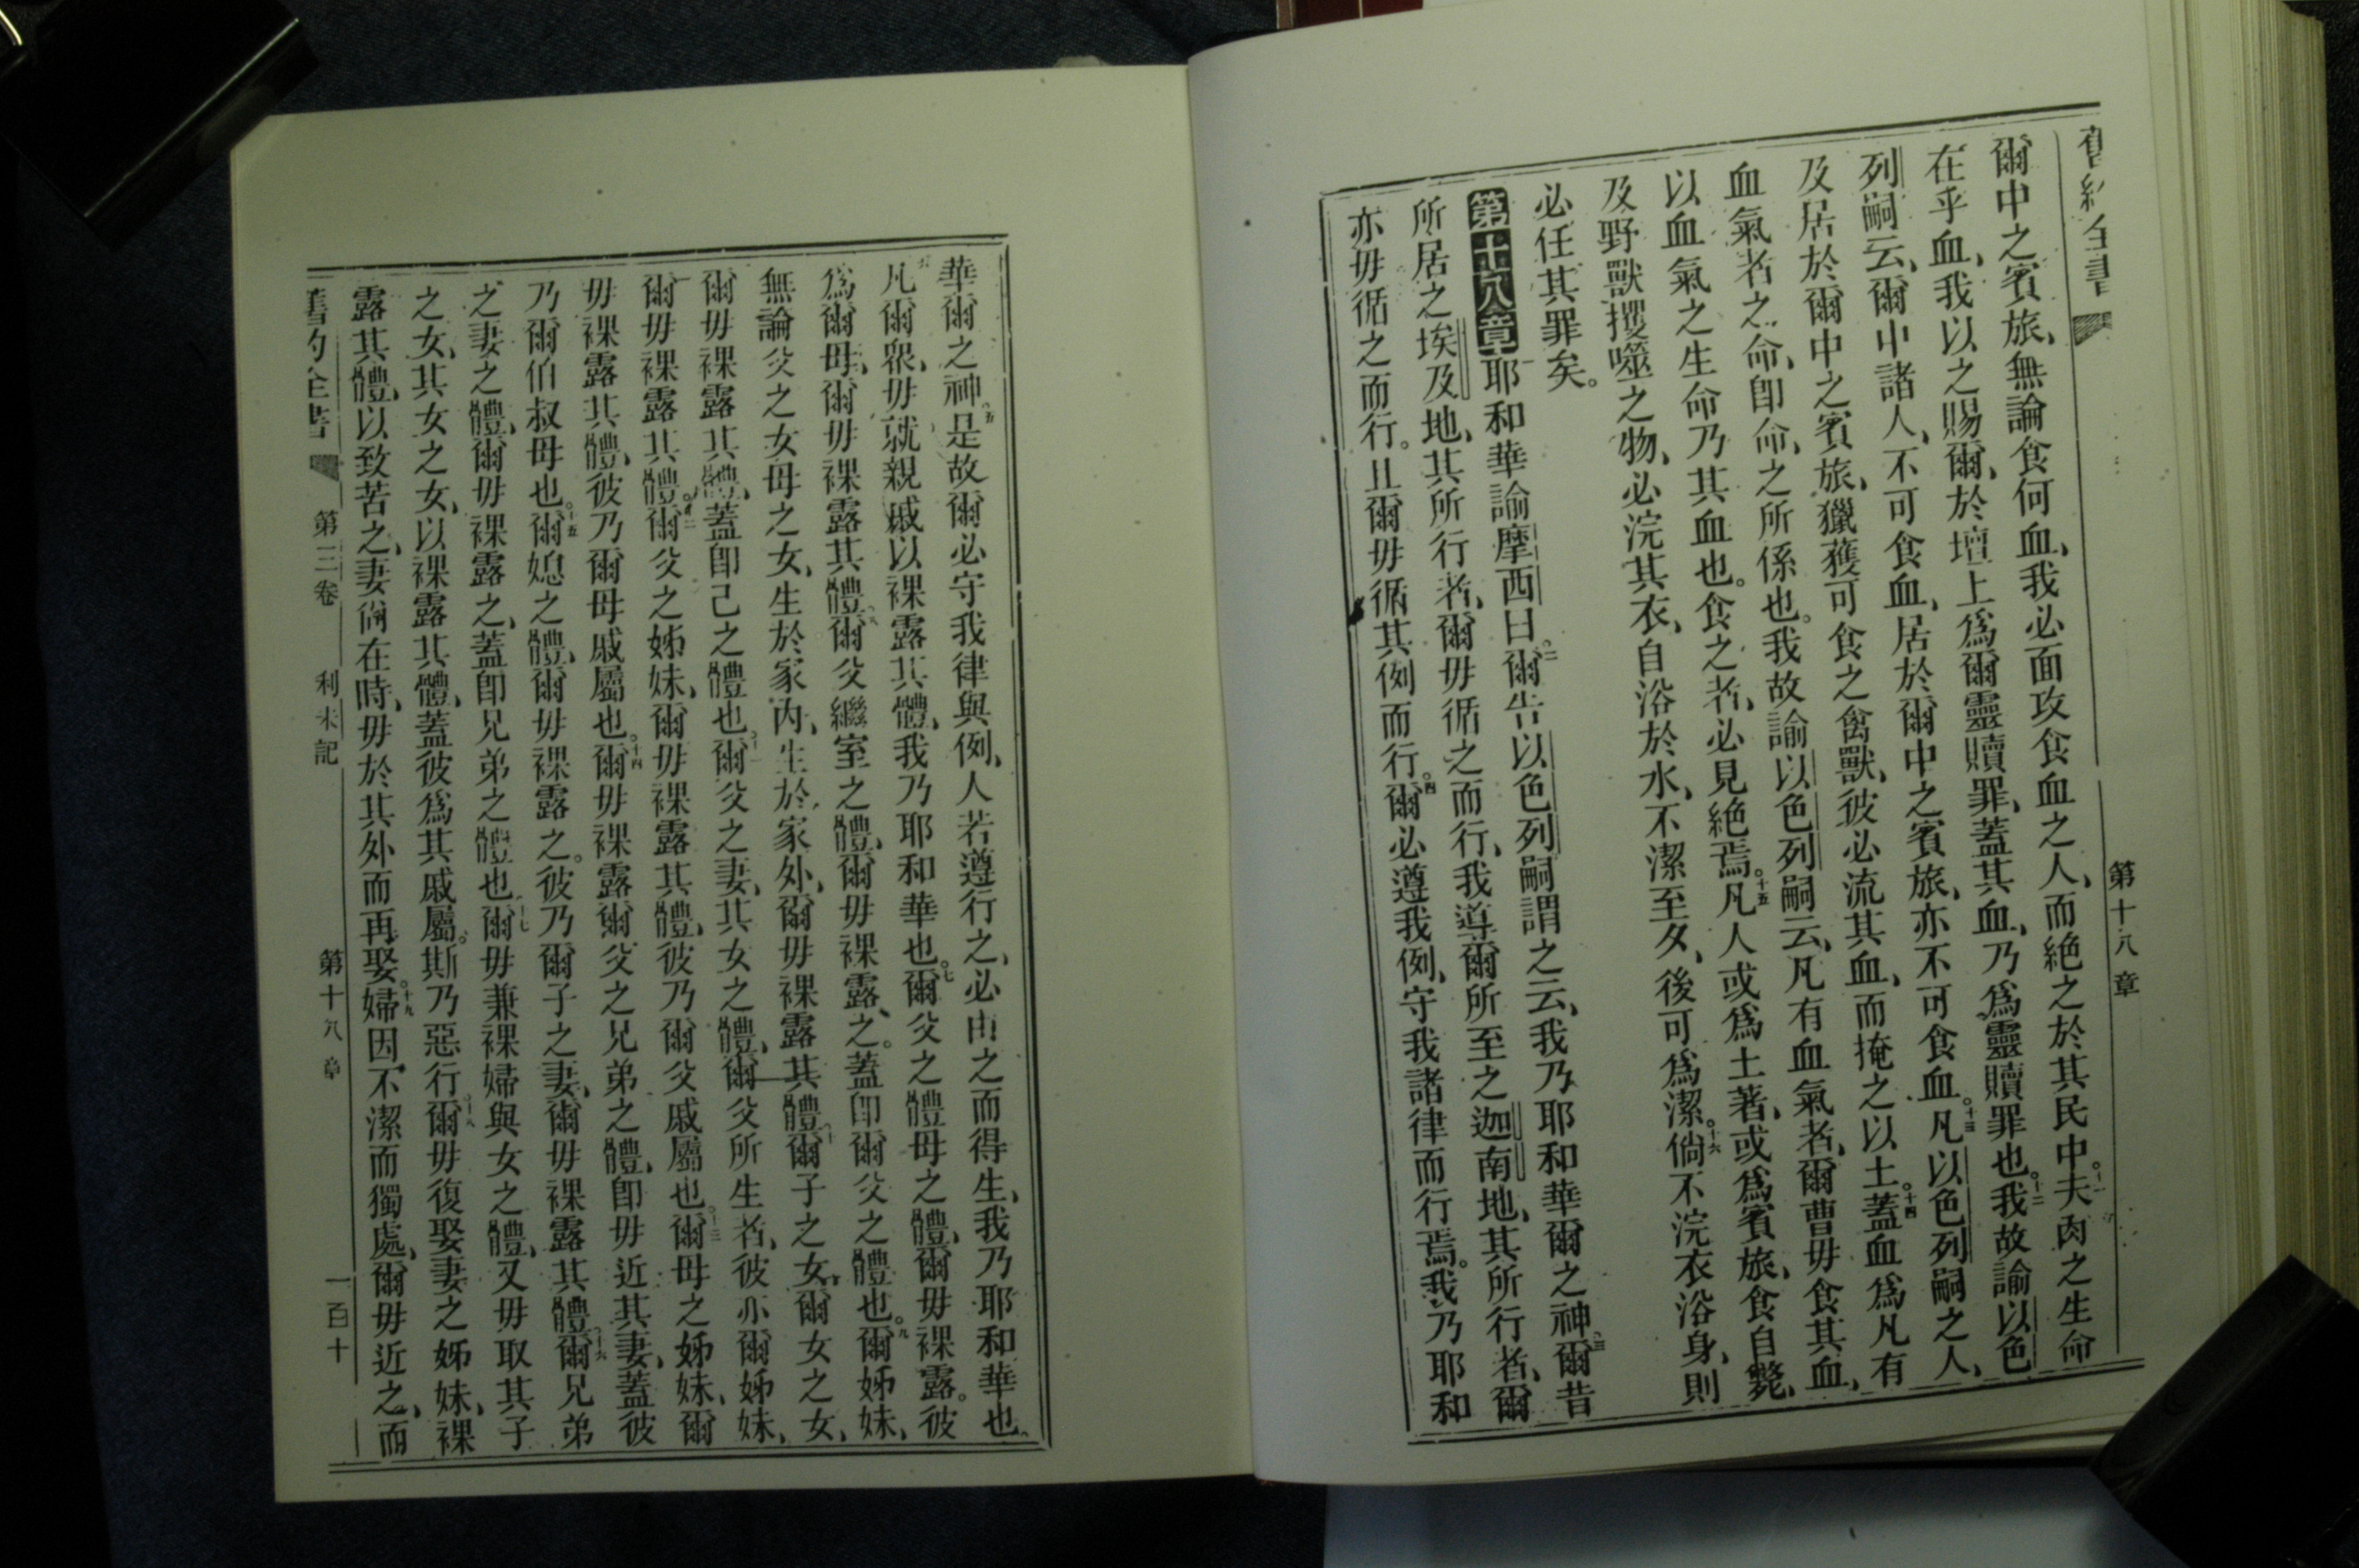 舊約全書
第十八章
爾中之賓旅、無論食何血、我必面攻食血之人、而絕之於其民中。十一夫肉之生命
在乎血、我以之賜爾、於壇上爲爾靈贖罪、蓋其血、乃爲靈贖罪也。十二我故諭以色
列嗣云、爾中諸人、不可食血、居於爾中之賓旅、亦不可食血。十三凡以色列嗣之人、
及居於爾中之賓旅、獵獲可食之禽獸、彼必流其血、而掩之以土。十四蓋血爲凡有
血氣者之命、卽命之所係也。我故諭以色列嗣云、凡有血氣者、爾曹毋食其血、
以血氣之生命乃其血也。食之者、必見絕焉。十五凡人或爲土著、或爲賓旅、食自斃、
及野獸攫噬之物、必浣其衣、自浴於水、不潔至夕、後可爲潔。十六倘不浣衣浴身、則
必任其罪矣。
第十八章一耶和華諭摩西曰。二爾告以色列嗣謂之云、我乃耶和華爾之神。三爾昔
所居之埃及地、其所行者、爾毋循之而行、我導爾所至之迦南地、其所行者、爾
亦毋循之而行。且爾毋循其例而行。四爾必遵我例、守我諸律而行焉。我乃耶和
華爾之神。五是故爾必守我律與例、人若遵行之、必由之而得生、我乃耶和華也。
六凡爾衆、毋就親戚以裸露其體、我乃耶和華也。七爾父之體母之體、爾毋裸露。彼
爲爾母、爾毋裸露其體。八爾父繼室之體、爾毋裸露之。蓋卽爾父之體也。九爾姊妹、
無論父之女母之女、生於家內、生於家外、爾毋裸露其體。十爾子之女、爾女之女、
爾毋裸露其體、蓋卽己之體也。十一爾父之妻、其女之體、爾父所生者、彼亦爾姊妹、
爾毋裸露其體。十二爾父之姊妹、爾毋裸露其體、彼乃爾父戚屬也。十三爾母之姊妹、爾
毋裸露其體、彼乃爾母戚屬也。十四爾毋裸露爾父之兄弟之體、卽毋近其妻、蓋彼
乃爾伯叔母也。十五爾媳之體、爾毋裸露之。彼乃爾子之妻、爾毋裸露其體。十六爾兄弟
之妻之體、爾毋裸露之、蓋卽兄弟之體也。十七爾毋兼裸婦與女之體、又毋取其子
之女、其女之女、以裸露其體、蓋彼爲其戚屬。斯乃惡行。十八爾毋復娶妻之姊妹、裸
露其體、以致苦之、妻尙在時、毋於其外而再娶。十九婦因不潔而獨處、爾毋近之、而
舊約全書 第三卷 利未記 第十八章 一百十